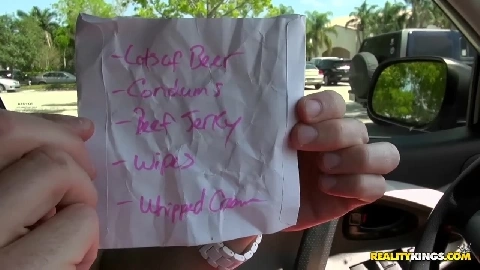 -Lots of Beer
-Condums
-Beef Jerky
- Wipes
- Whipped Cream
REALITYKINGS.COM